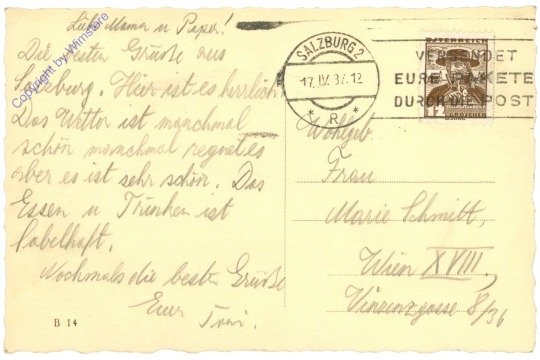 Liebe Mama u Papa!
Die besten Grüße aus
Salzburg. Hier ist es herrlich
Das Wetter ist manchmal
schön manchmal regnet es
aber es ist sehr schön. Das
Essen u Trinken ist
fabelhaft.
Nochmals die besten Grüße
Euer
Toni.
B 14
SALZBURG 2
17. IV. 37. 12
* R *
VERSENDET
EURE PAKETE
DURCH DIE POST
ÖSTERREICH
GROSCHEN
Wohlgeb.
Frau
Marie Schmitt,
Wien XVIII,
Vinzenzgasse 8/36
Copyright by Wimstore